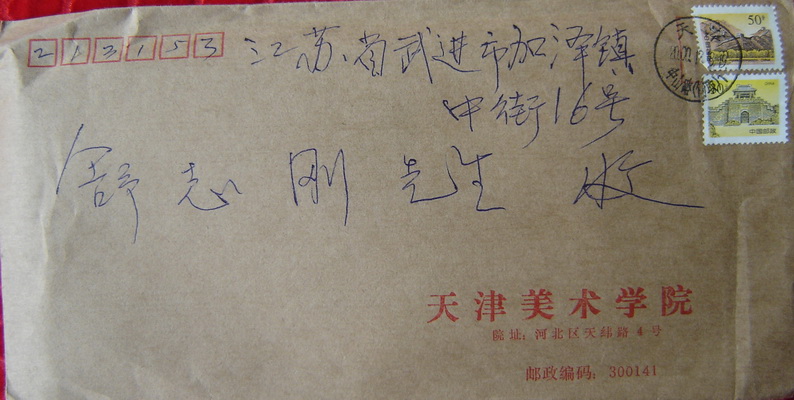 213153
江苏省武进市加泽镇
中街16号
舒志刚 先生 收
50分
中国邮政
天津美术学院
院址:河北区天纬路4号
邮政编码:300141